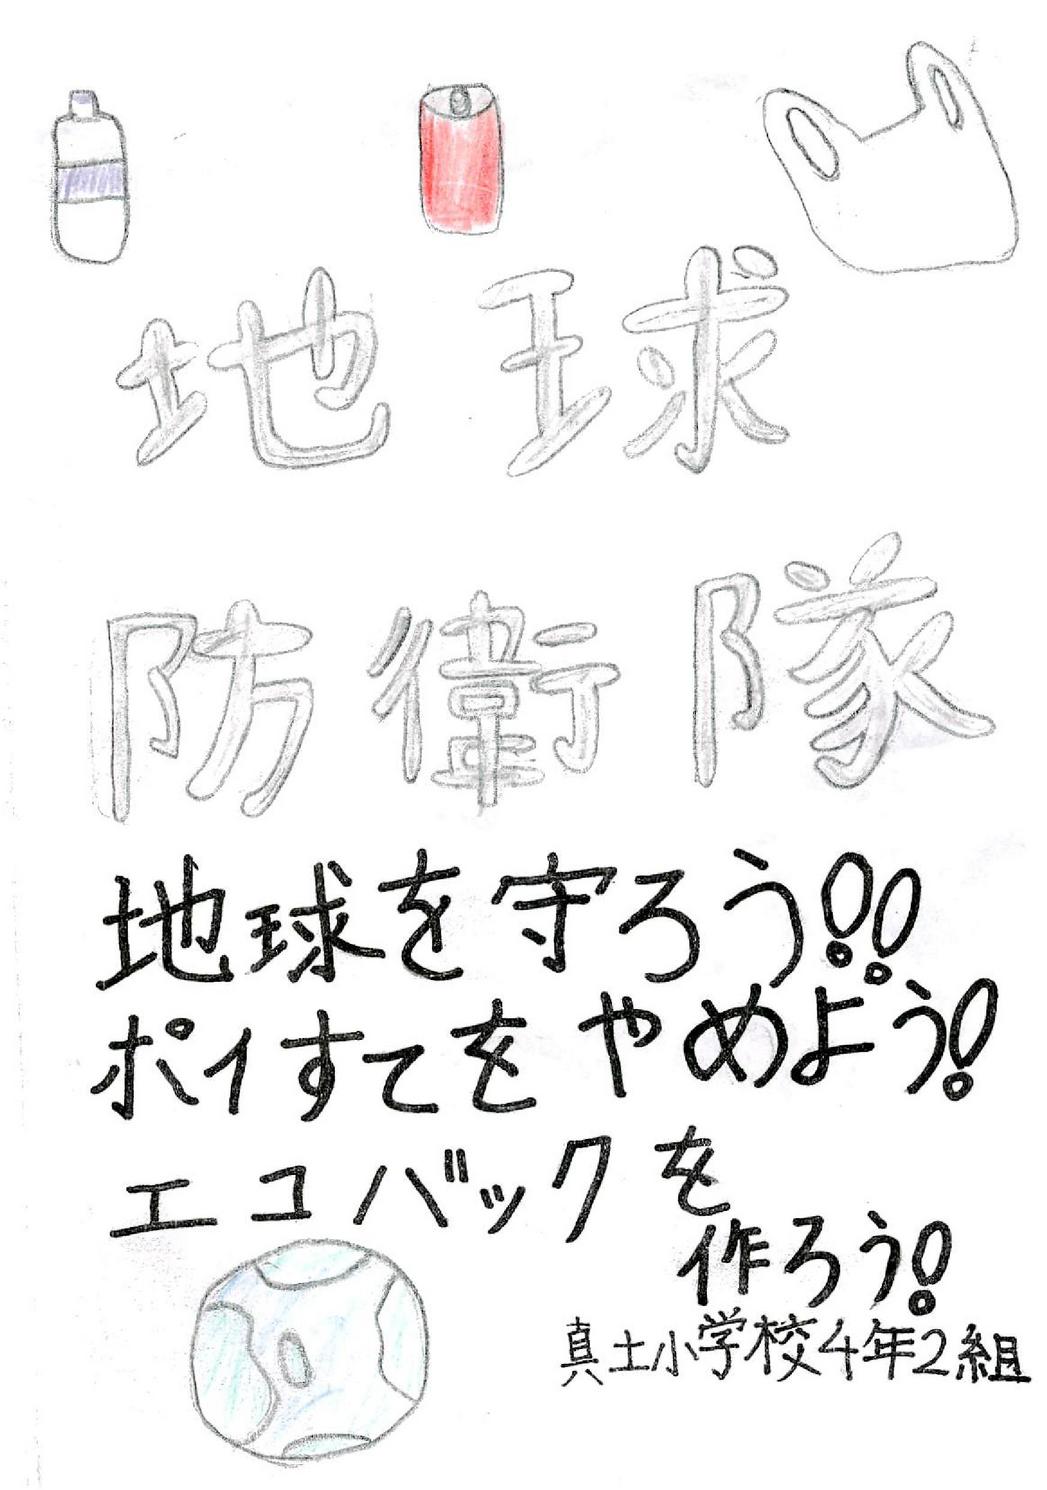 地球
防衛隊
地球を守ろう!!
ポイすてをやめよう!
エコバックを
作ろう!
真土小学校4年2組